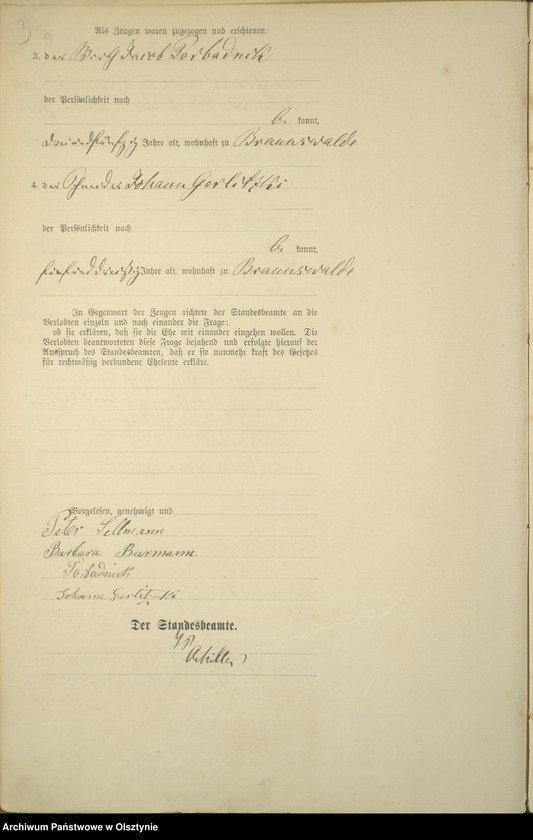 3
Als Zeugen waren zugezogen und erschienen:
3. der Wirth Jacob Sorbadnick
der Persönlichkeit nach
be kannt,
dreiundfünfzig Jahre alt, wohnhaft zu Braunswalde
4. der Schneider Johann Gerlitzki
der Persönlichkeit nach
be kannt,
fünfunddreißig Jahre alt, wohnhaft zu Braunswalde
In Gegenwart der Zeugen richtete der Standesbeamte an die
Verlobten einzeln und nach einander die Frage:
ob sie erklären, daß sie die Ehe mit einander eingehen wollen. Die
Verlobten beantworteten diese Frage bejahend und erfolgte hierauf der
Ausspruch des Standesbeamten, daß er sie nunmehr kraft des Gesetzes
für rechtmäßig verbundene Eheleute erkläre.
Vorgelesen, genehmigt und
Peter Sellmann
Barbara Burmann
Sorbadnick
Johann Gerlitzki
Der Standesbeamte.
Archiwum Państwowe w Olsztynie